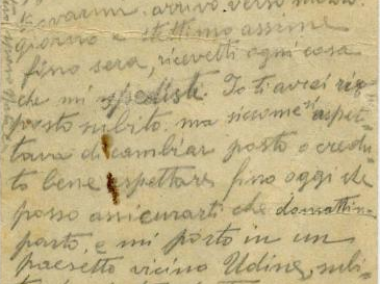 trovarmi. arrivò verso mezzo
giorno e stettimo assime
fino sera, ricevetti ogni cosa
che mi spedisti. Io ti avrei ris
posto subito. ma siccome si aspet-
tava di cambiar posto o credu-
to bene aspettare fino oggi che
posso assicurarti che domattina
parto, e mi porto in un
paesetto vicino Udine, subi-